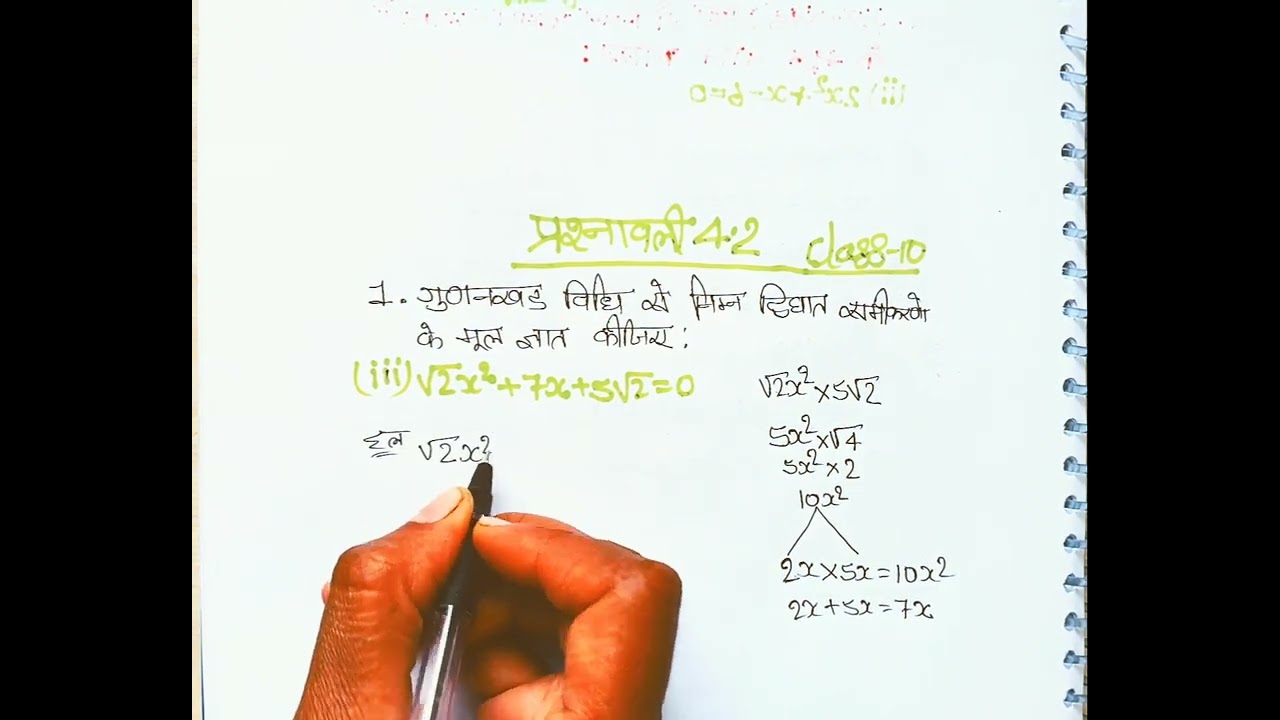 प्रश्नावली 4.2 Class-10
1. गुणनखंड विधि से निम्न द्विघात समीकरणो
के मूल ज्ञात कीजिए:
(iii) √2x²+7x+5√2=0
हल √2x²
√2x²×5√2
5x²×√4
5x²×2
10x²
2x×5x=10x²
2x+5x=7x